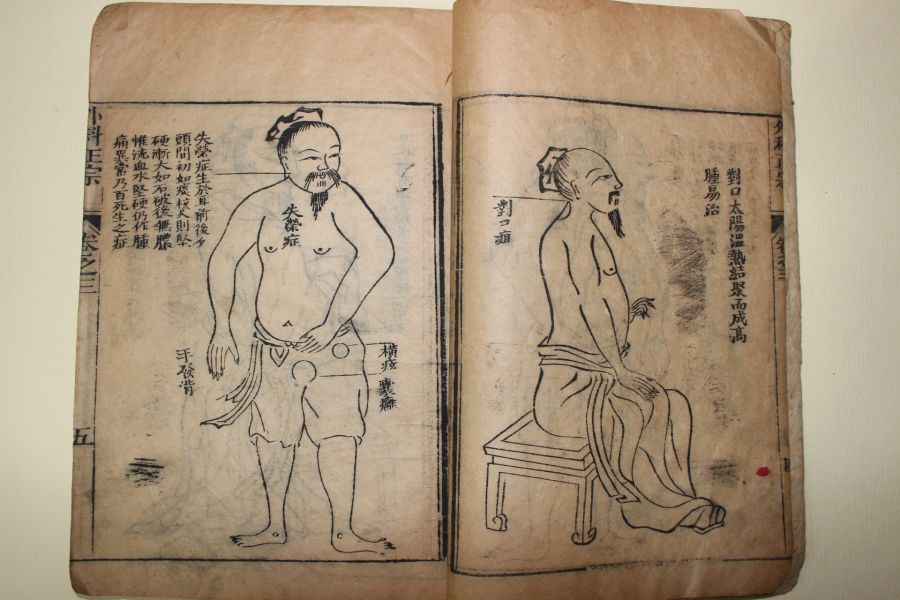 外科正宗
對口太陽溫熱結聚而成高
腫易治
對口疽
失榮症
橫痃
囊癰
失榮症生於耳前後及
頭間初如痰核久則堅
硬漸大如石破後無膿
惟流血水堅硬仍作腫
痛異常乃百死生之症
手發背
外科正宗
卷之三
五